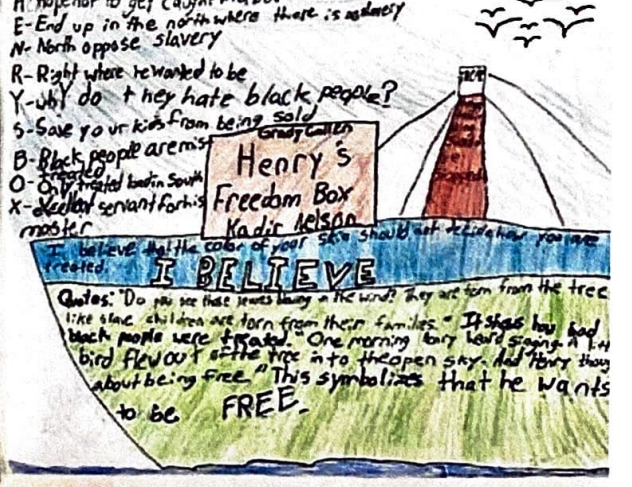 H- Hope not to get caught
E- End up in the north where there is no slavery
N- North oppose slavery
R- Right where he wanted to be
Y- whY do they hate black people?
S- Save your kids from being sold
B- Black people are mis
treated
O- Only treated bad in South
X- servant for his
master
Henry's
Freedom Box
Kadir Nelson
I believe that the color of your skin should not decide how you are
treated.
I BELIEVE
Quotes: "Do you see those leaves blowing in the wind? They are torn from the tree
like slave children are torn from their families." It shows how bad
black people were treated. "One morning Henry heard singing. A
bird flew out of the tree in to the open sky. And Henry thoug
about being free." This symbolizes that he wants
to be FREE.